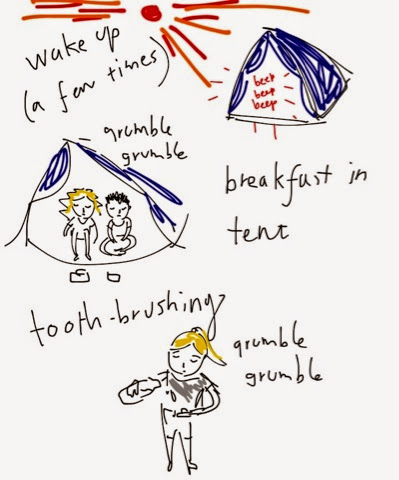 wake up
(a few times)
beep
beep
beep
grumble
grumble
breakfast in
tent
tooth-brushing
grumble
grumble